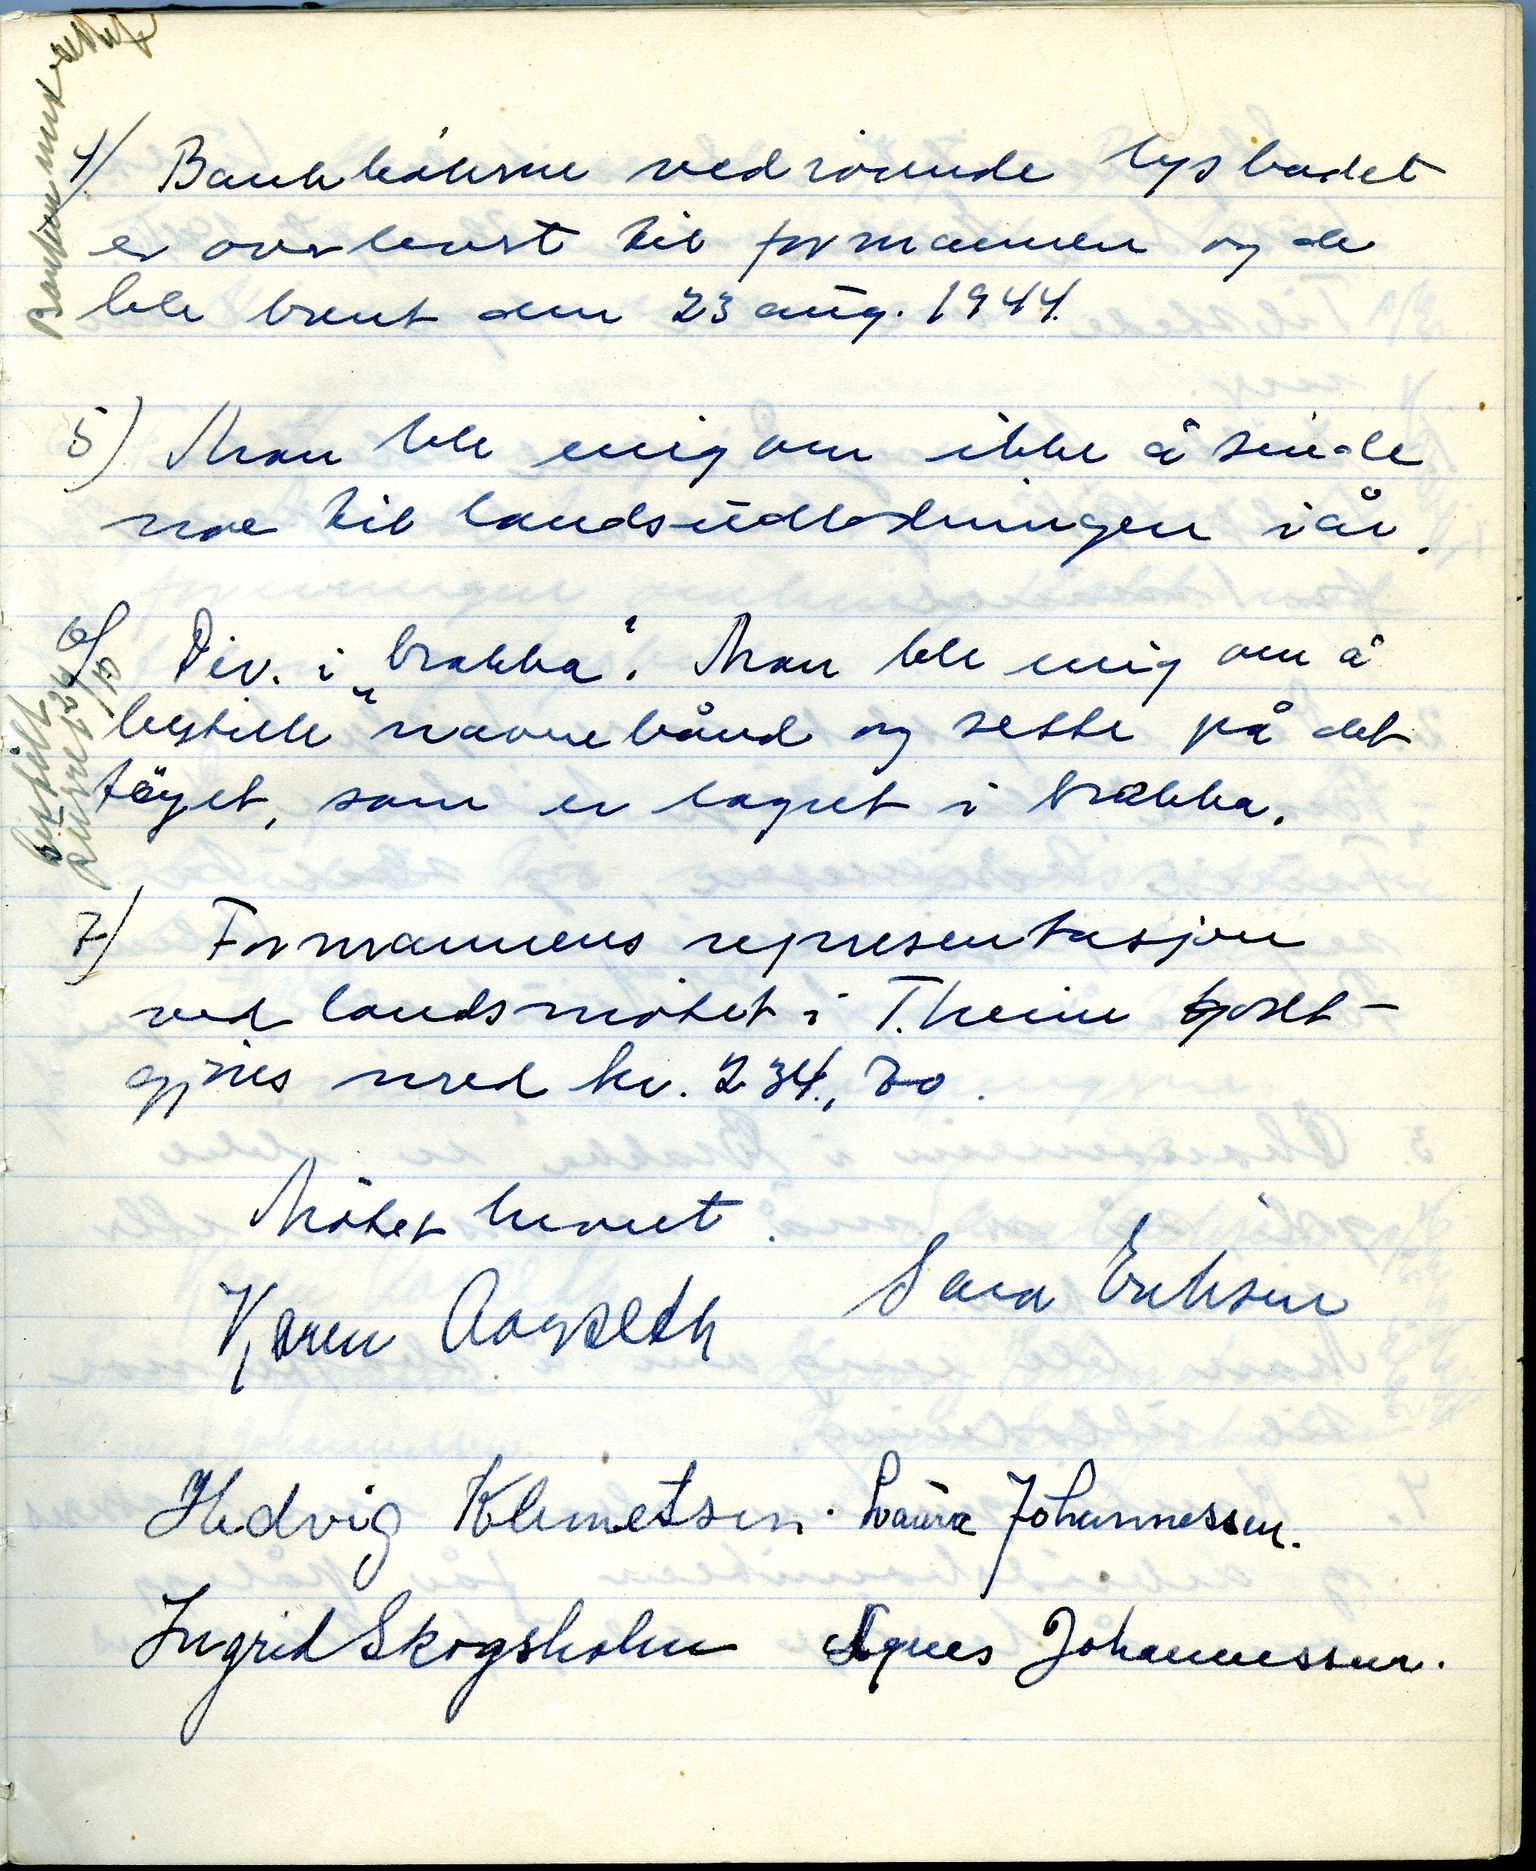 4/ Bankbökerne vedrörende lysbadet
er overlevert til formannen og de
ble brent den 23 aug. 1944.
5) Man ble enig om ikke å sende
noe til landsutlodningen i år.
6/ Div. i "brakka". Man ble enig om å
bestille navnebånd og sette på det
töyet, som er lagret i brakka.
7/ Formannens representasjon
ved landsmötet i T.heim godt-
gjöres med kr. 234,70.
Mötet hevet.
Karen Aagseth Sara Eriksen
Hedvig Klemetsen. Laura Johannessen.
Ingrid Skogsholm Agnes Johannessen.